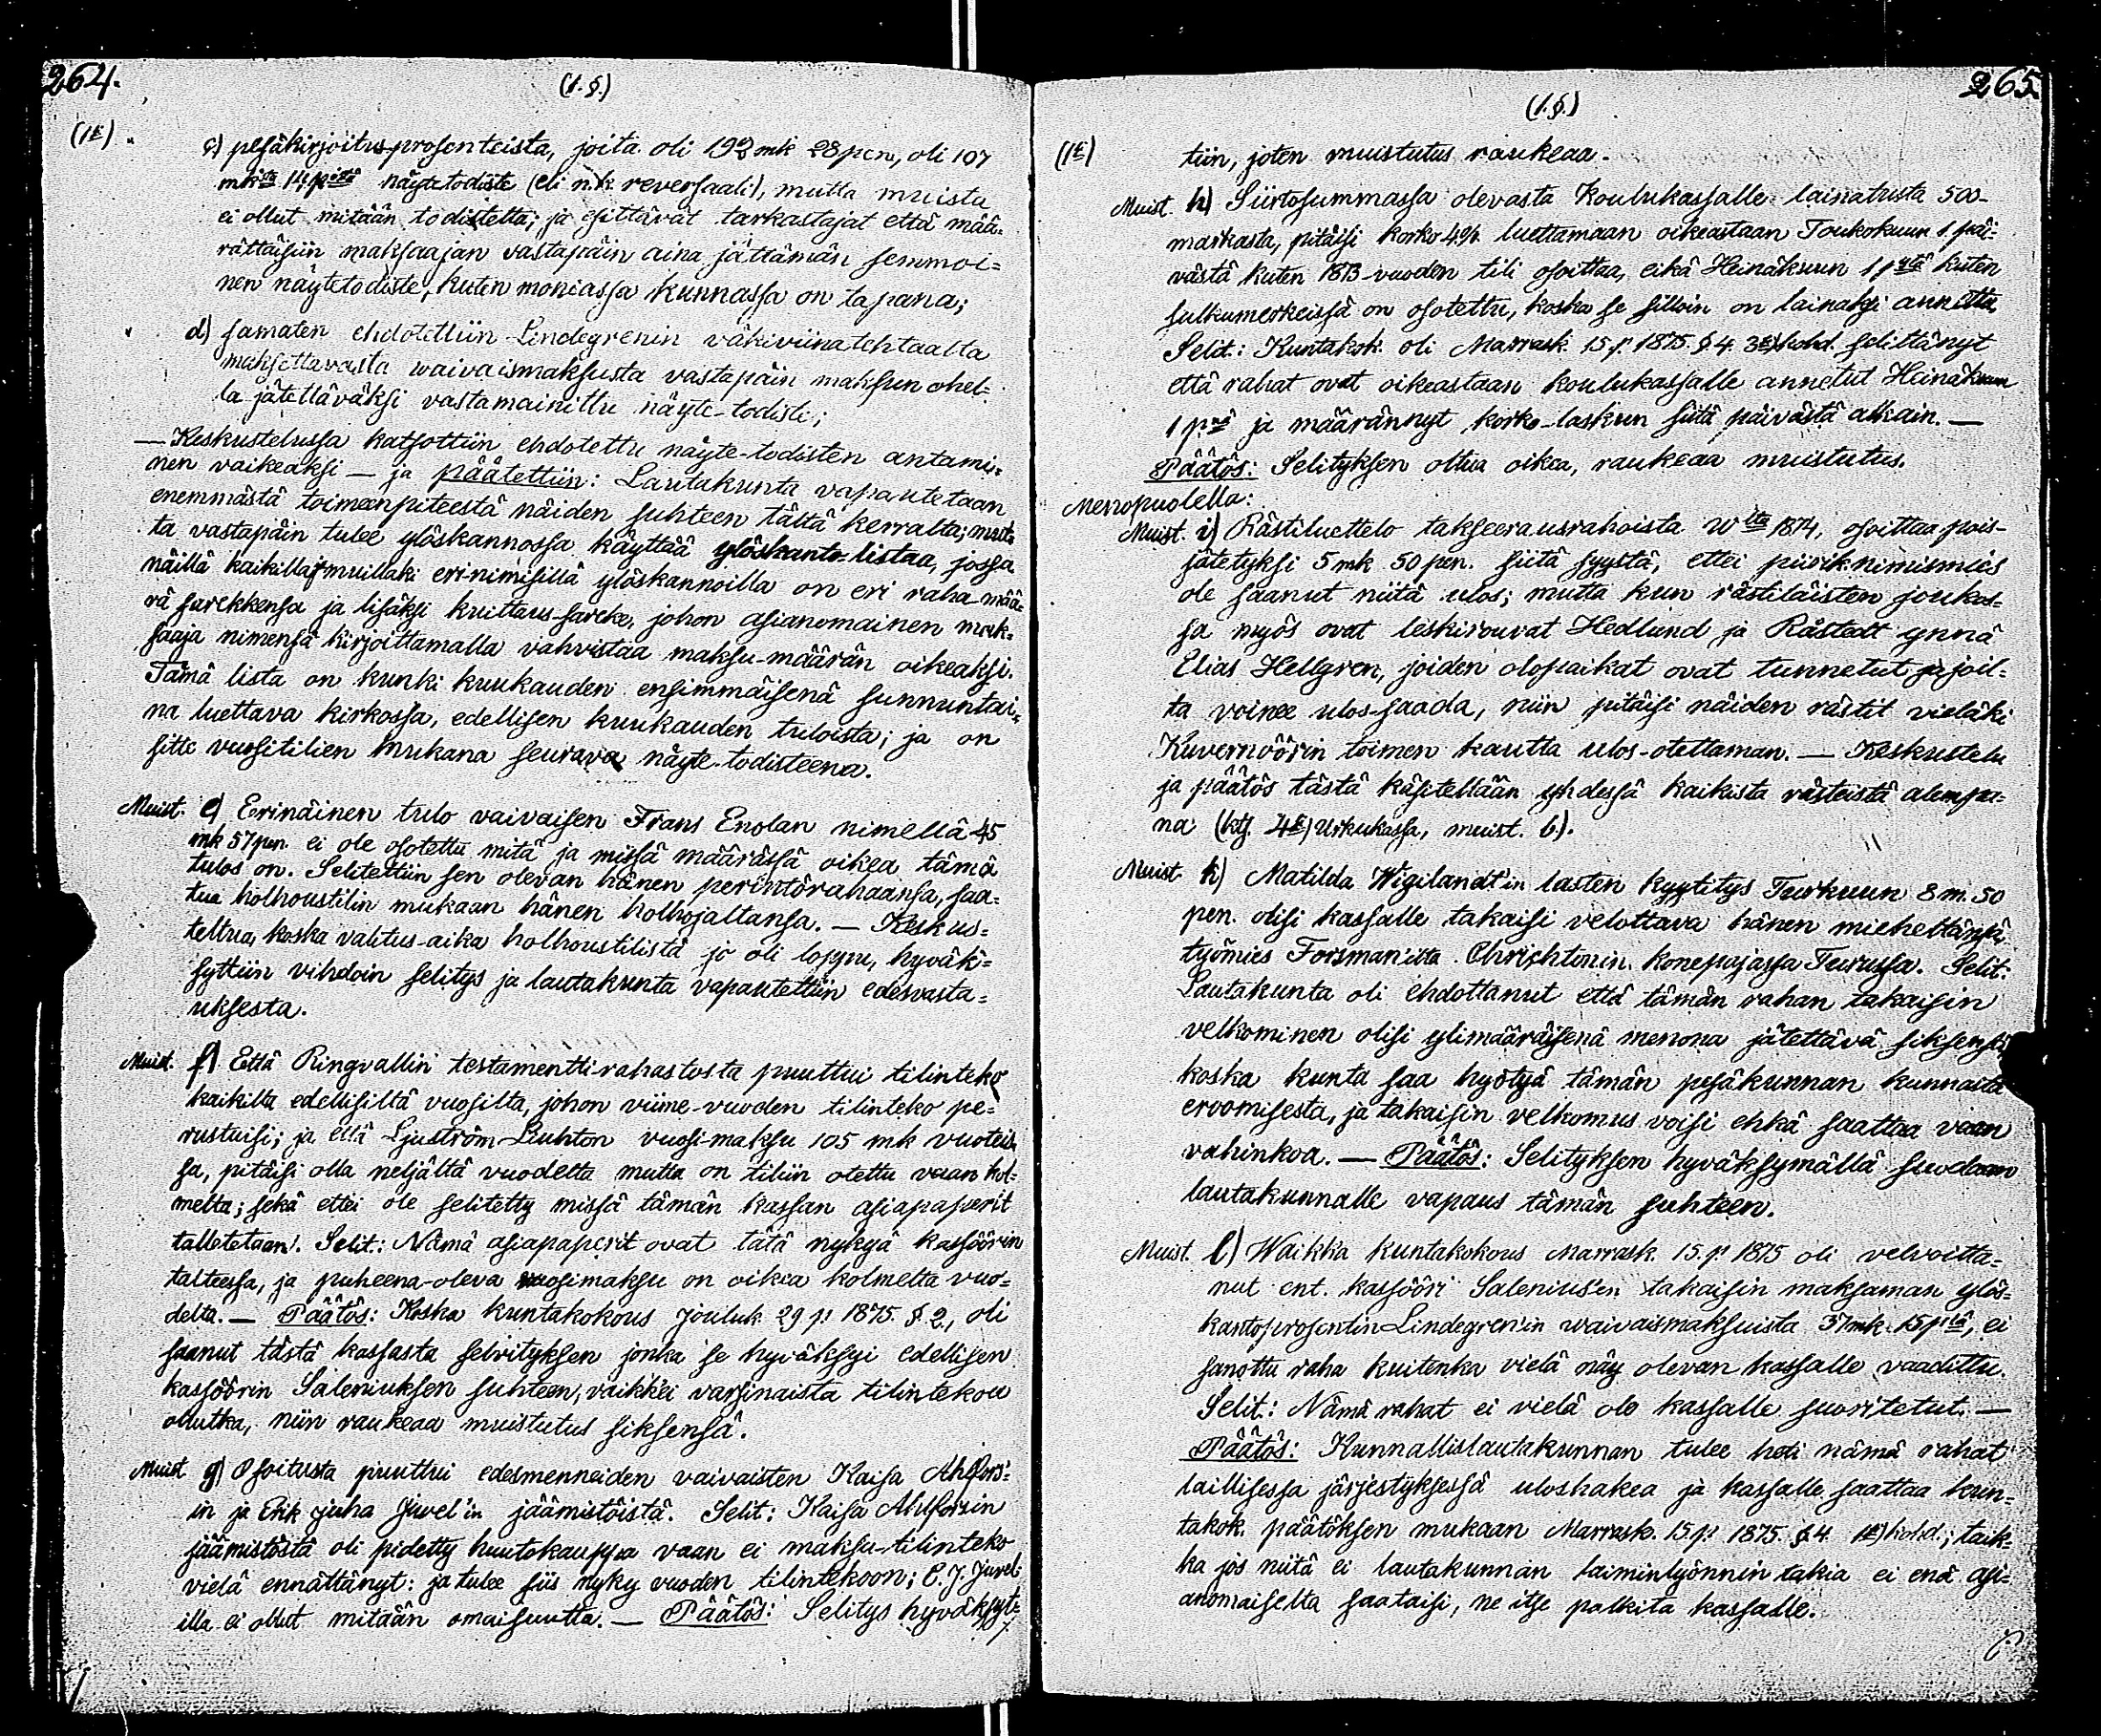 264.
(1.§.)
(1E)
c) pesäkirjoitus-prosenteista, joita oli 192 mk 28 pen, oli 107
mkista 14 pistä näytetodiste (eli n.k. reversaali), mutta muista
ei ollut mitään todistetta; ja esittävät tarkastajat että mää-
rättäisiin maksaajan vastapäin aina jättämän semmoi=
nen näytetodiste, kuten moniassa kunnassa on tapana;
d) samaten ehdotettiin Lindegrenin väkiviinatehtaalta
maksettavasta waivaismaksusta vastapäin maksun ohel-
la jätettäväksi vastamainittu näyte-todiste;
— Keskustelussa katsottiin ehdotettu näyte-todisten antami=
nen vaikeaksi — ja päätettiin: Lautakunta vapautetaan
enemmästä toimeenpiteestä näiden suhteen tältä kerralta; mut-
ta vastapäin tulee ylöskannossa käyttää ylöskanto-listaa, jossa
näillä kaikilla ja muillaki erinimisillä ylöskannoilla on eri raha-mää-
rä sarekkensa ja lisäksi kuittaus-sareke, johon asianomainen mak-
saaja nimensä kirjoittamalla vahvistaa maksu-määrän oikeaksi.
Tämä lista on kunki kuukauden ensimmäisenä sunnuntai=
na luettava kirkossa, edellisen kuukauden tuloista; ja on
sitte vuositilien mukana seurava näyte-todisteena.
Muist. e) Eerinäinen tulo vaivaisen Frans Enolan nimellä 45
mk 57 pen. ei ole osotettu mitä ja missä määrässä oikea tämä
tulos on. Selitettiin sen olevan hänen perintörahaansa, saa=
tua holhoustilin mukaan hänen holhojaltansa. — Keskus=
teltua, koska valitus-aika holhoustilistä jo oli loppu, hyväk=
syttiin vihdoin selitys ja lautakunta vapautettiin edesvasta=
uksesta.
Muist. f) Että Ringvallin testamenttirahastosta puuttui tilinteko
kaikilta edellisiltä vuosilta, johon viime-vuoden tilinteko pe=
rustuisi; ja että Ljuström-Luhton vuosi-maksu 105 mk vuotei-
sa, pitäisi olla neljältä vuodelta mutta on tiliin otettu vaan kol-
melta; sekä ettei ole selitetty missä tämän kassan asiapaperit
talletetaan. Selit.: Nämä asiapaperit ovat tätä nykyä kassöörin
talteessa, ja puheena-oleva vuosimaksu on oikea kolmelta vuo=
delta. — Päätös: Koska kuntakokous Jouluk. 29 p: 1875. §. 2., oli
saanut tästä kassasta selvityksen jonka se hyväksyi edellisen
kassöörin Saleniuksen suhteen, vaikk'ei varsinaista tilintekoa
ollutka, niin raukeaa muistutus siksensä.
Muist g) Osoitusta puuttui edesmenneiden vaivaisten Kaisa Ahlfors'-
in ja Erik Juha Juvel'in jäämistöistä. Selit: Kaisa Ahlforsin
jäämistöstä oli pidetty huutokauppa vaan ei maksu-tilinteko
vielä ennättänyt: ja tulee siis nyky vuoden tilintekoon; E.J. Juvel-
illa ei ollut mitään omaisuutta. — Päätös: Selitys hyväksyt-
265
(1.§.)
(1E)
tiin, joten muistutus raukeaa.
Muist. h) Siirtosummassa olevasta Koulukassalle lainatusta 500-
markasta, pitäisi korko 4% luettamaan oikeastaan Toukokuun 1. päi-
västä kuten 1873 vuoden tili osoittaa, eikä Heinäkuun 1 pstä kuten
sulkumerkeissä on osotettu, koska se silloin on lainaksi annettu.
Selit.: Kuntakok. oli Marrask. 15 p: 1875. §. 4. 3E) kohd. selittänyt
että rahat ovat oikeastaan koulukassalle annetut Heinäkuun
1 pnä ja määrännyt korko-laskun siitä päivästä alkain. —
Päätös: Selityksen oltua oikea, raukeaa muistutus.
Menopuolella:
Muist. i) Rästiluettelo takseerausrahoista wlta 1874, osoittaa pois-
jätetyksi 5 mk 50 pen. siitä syystä, ettei piirik. nimismies
ole saanut niitä ulos; mutta kun rästiläisten joukos-
sa myös ovat leskirouvat Hedlund ja Råstedt ynnä
Elias Hellgren, joiden olopaikat ovat tunnetut ja joil-
ta voinee ulos-saada, niin pitäisi näiden rästit vieläki
Kuvernöörin toimen kautta ulos-otettaman. — Keskustelu
ja päätös tästä käsitellään yhdessä kaikista rästeistä alempa-
na (kts. 4E) Urkukassa, muist. b.).
Muist k) Matilda Wigilandt'in lasten kyytitys Turkuun 8 m. 50
pen. olisi kassalle takaisi velottava hänen mieheltänsä
työmies Forsman'ilta Chrichtonin konepajassa Turussa. Selit:
Lautakunta oli ehdottanut että tämän rahan takaisin
velkominen olisi ylimääräisenä menona jätettävä siksensä,
koska kunta saa hyötyä tämän pesäkunnan kunnasta
eroomisesta, ja takaisin velkomus voisi ehkä saattaa vaan
vahinkoa. — Päätös: Selityksen hyväksymällä suodaan
lautakunnalle vapaus tämän suhteen.
Muist. l) Waikka kuntakokous Marrask. 15. p: 1875 oli velvoitta-
nut ent. kassööri Salenius'en takaisin maksaman ylös-
kantoprosentin Lindegren'in waivaismaksuista 37 mk. 15 piä, ei
sanottu raha kuitenka vielä näy olevan kassalle vaadittu.
Selit.: Nämä rahat ei vielä ole kassalle suoritetut. —
Päätös: Kunnallislautakunnan tulee heti nämä rahat
laillisessa järjestyksessä uloshakea ja kassalle saattaa kun-
takok. päätöksen mukaan Marrask. 15. p: 1875 §4 1E) kohd.; taik-
ka jos niitä ei lautakunnan laiminlyönnin takia ei enä asi-
anomaiselta saataisi, ne itse palkita kassalle.